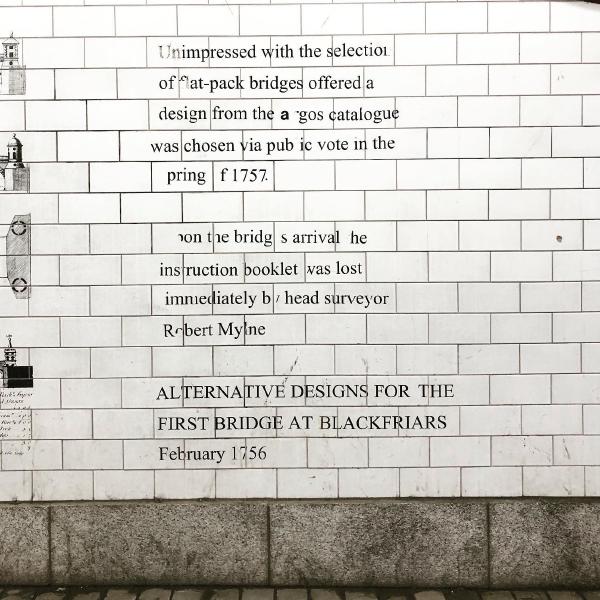 Unimpressed with the selection
of flat-pack bridges offered a
design from the argos catalogue
was chosen via pub ic vote in the
pring f 1757.
pon t e bridg s arrival he
ins ruction booklet was lost
immediately b head surveyor
Robert Mylne
ALTERNATIVE DESIGNS FOR THE
FIRST BRIDGE AT BLACKFRIARS
February 1756